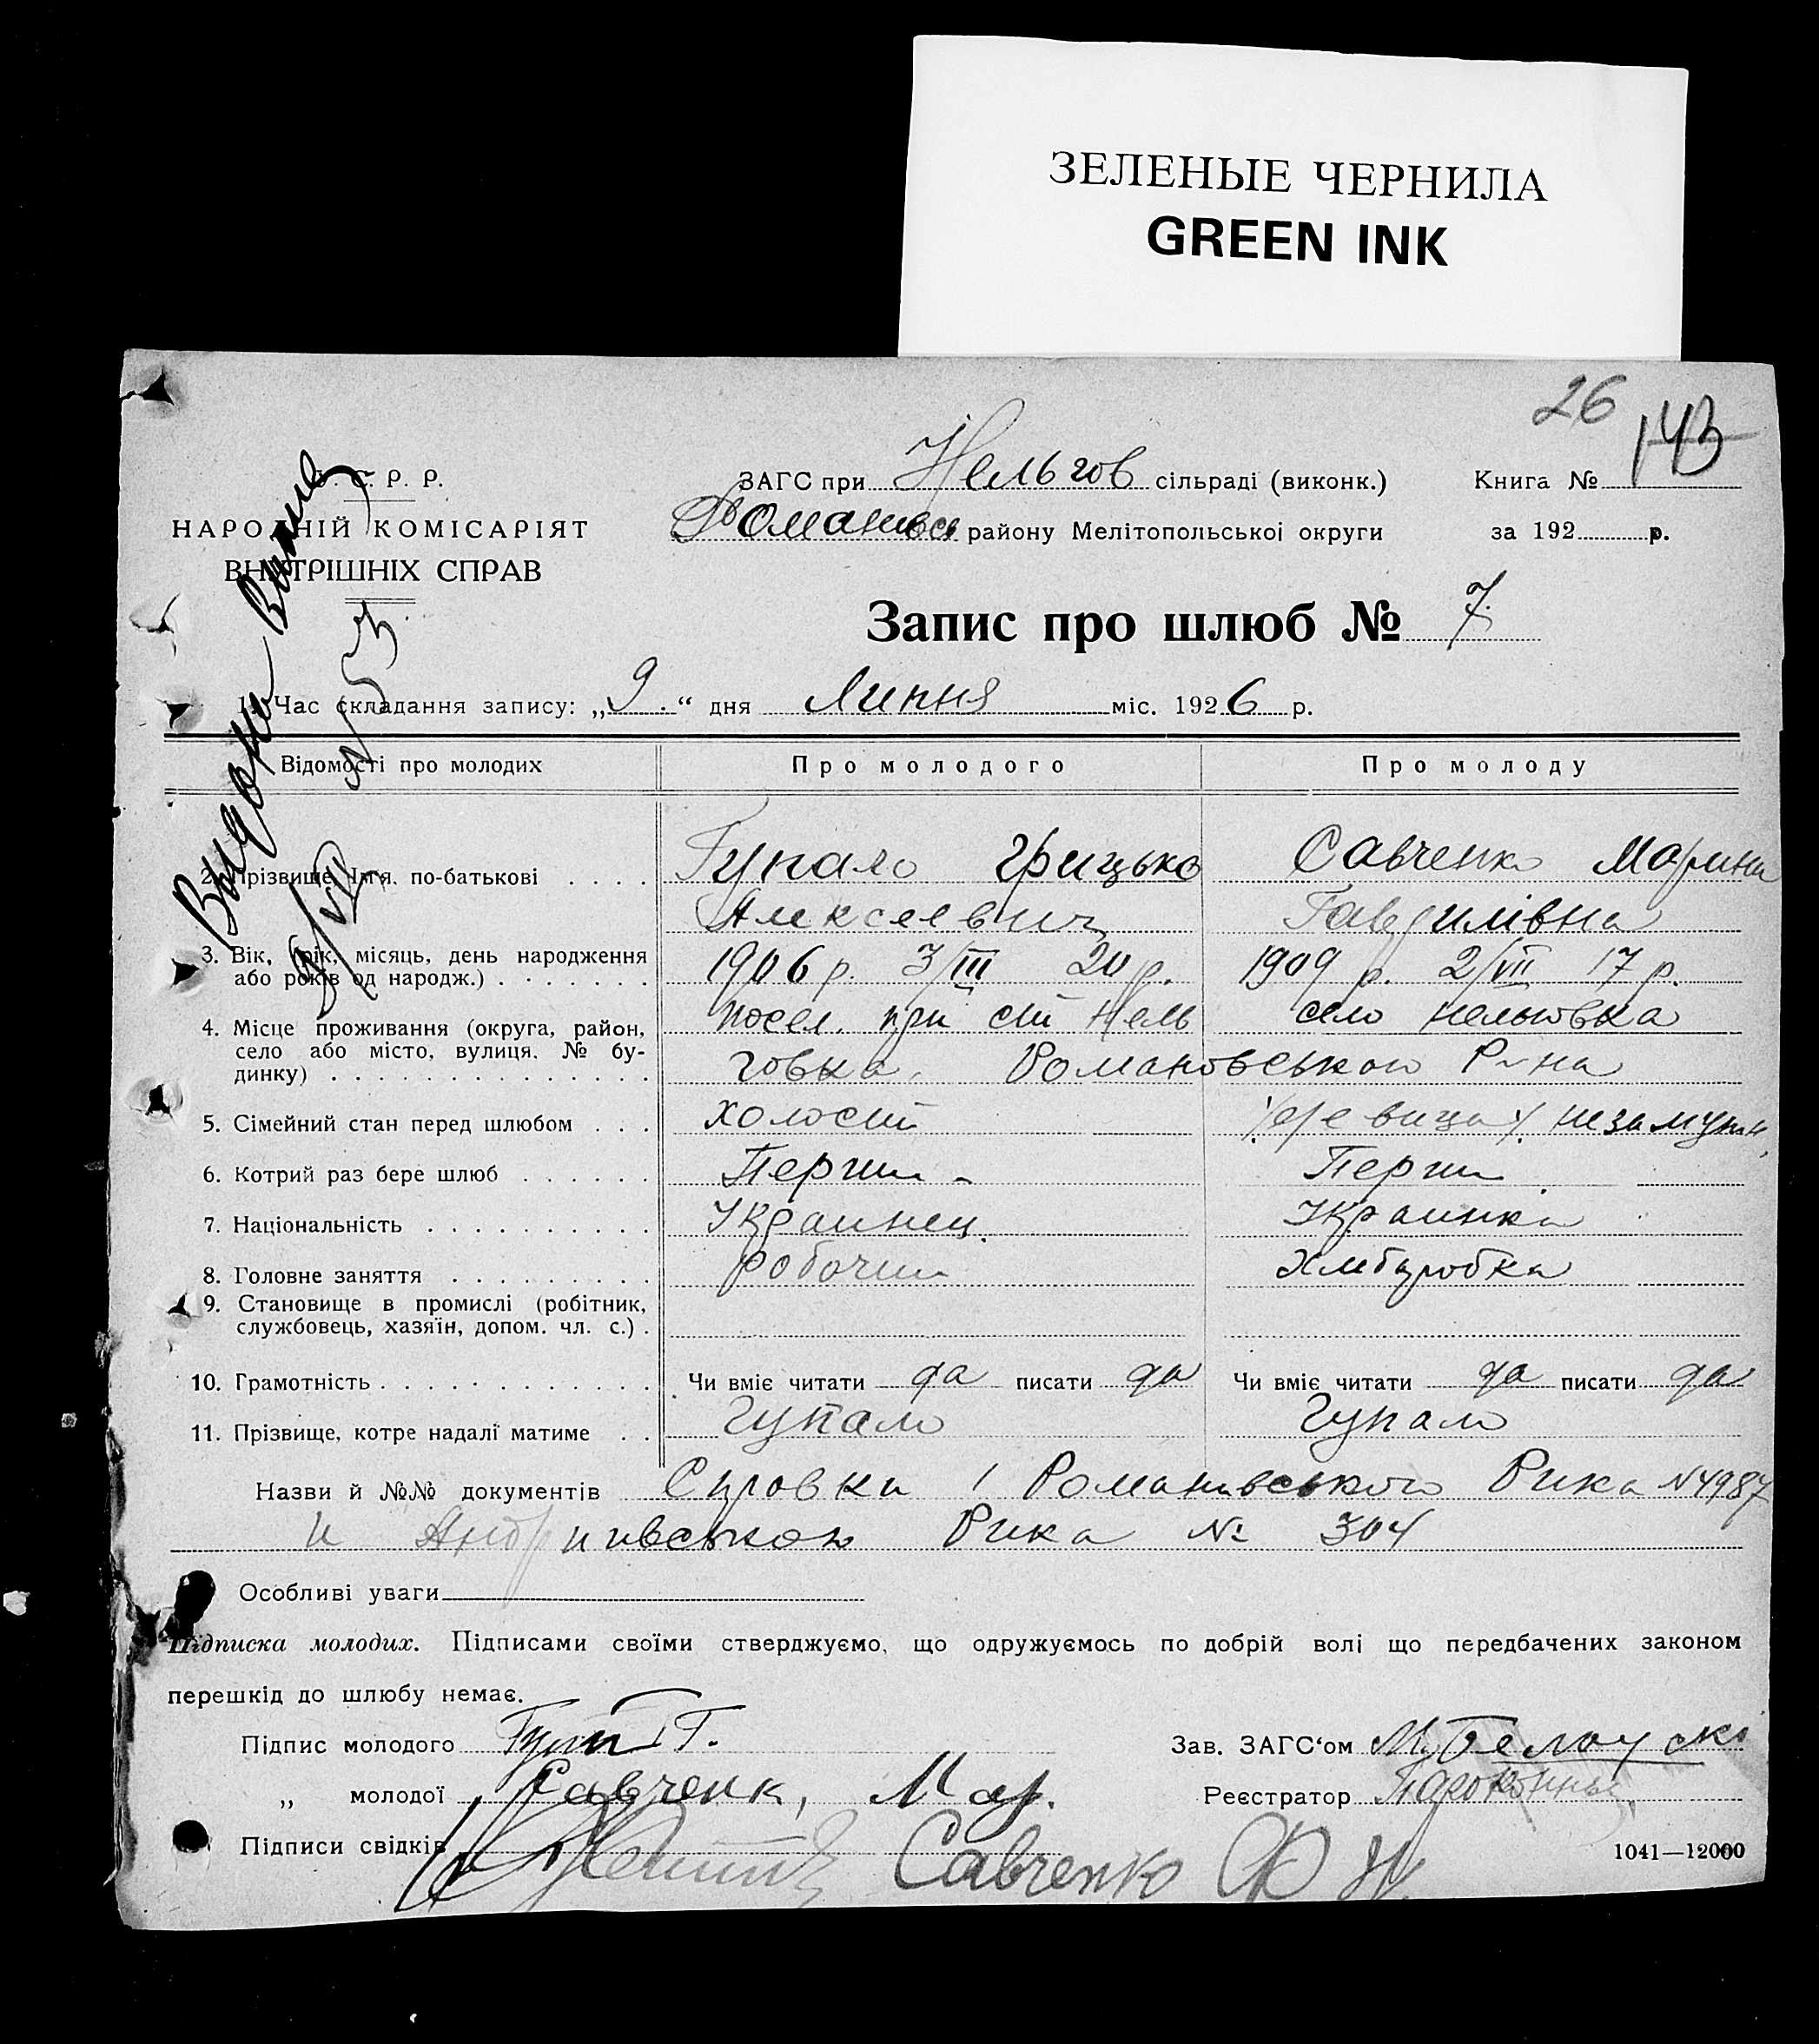 ЗЕЛЕНЫЕ ЧЕРНИЛА
GREEN INK
26
143
У. С. Р. Р.
НАРОДНІЙ КОМІСАРІЯТ
ВНУТРІШНІХ СПРАВ
ЗАГС при Нельгов сільраді (виконк.) Книга №
Романівсь району Мелітопольської округи за 192 р.
Запис про шлюб № 7
1. Час складання запису: „9.“ дня Липня міс. 1926 р.
Відомості про молодих Про молодого Про молоду
2. Прізвище, Ім'я, по-батькові Гупало Грицько Савченко Марина
Алексеевич Гаврилівна
3. Вік, (рік, місяць, день народження
або років од народж.) 1906 р. 3/III 20 р. 1909 р. 2/VII 17 р.
4. Місце проживання (округа, район,
село або місто, вулиця, № бу-
динку)
посел. при ст Нель село Нельговка
говка. Романовського Р-на
5. Сімейний стан перед шлюбом холост незамужн
6. Котрий раз бере шлюб Перши Перши
7. Національність Украинец Украинка
8. Головне заняття робочии Хлиборобка
9. Становище в промислі (робітник,
службовець, хазяїн, допом. чл. с.)
10. Грамотність Чи вміє читати да писати да Чи вміє читати да писати да
11. Прізвище, котре надалі матиме Гупало Гупало
Назви й №№ документів Справки Романивського Рика N4987
и Андриивського Рика № 304
Особливі уваги
Підписка молодих. Підписами своїми стверджуємо, що одружуємось по добрій волі що передбачених законом
перешкід до шлюбу немає.
Підпис молодого Г. Зав. ЗАГС'ом М.
„ молодої Савченк, Мар. Реєстратор
Підписи свідків Савченко Ф
1041—12000